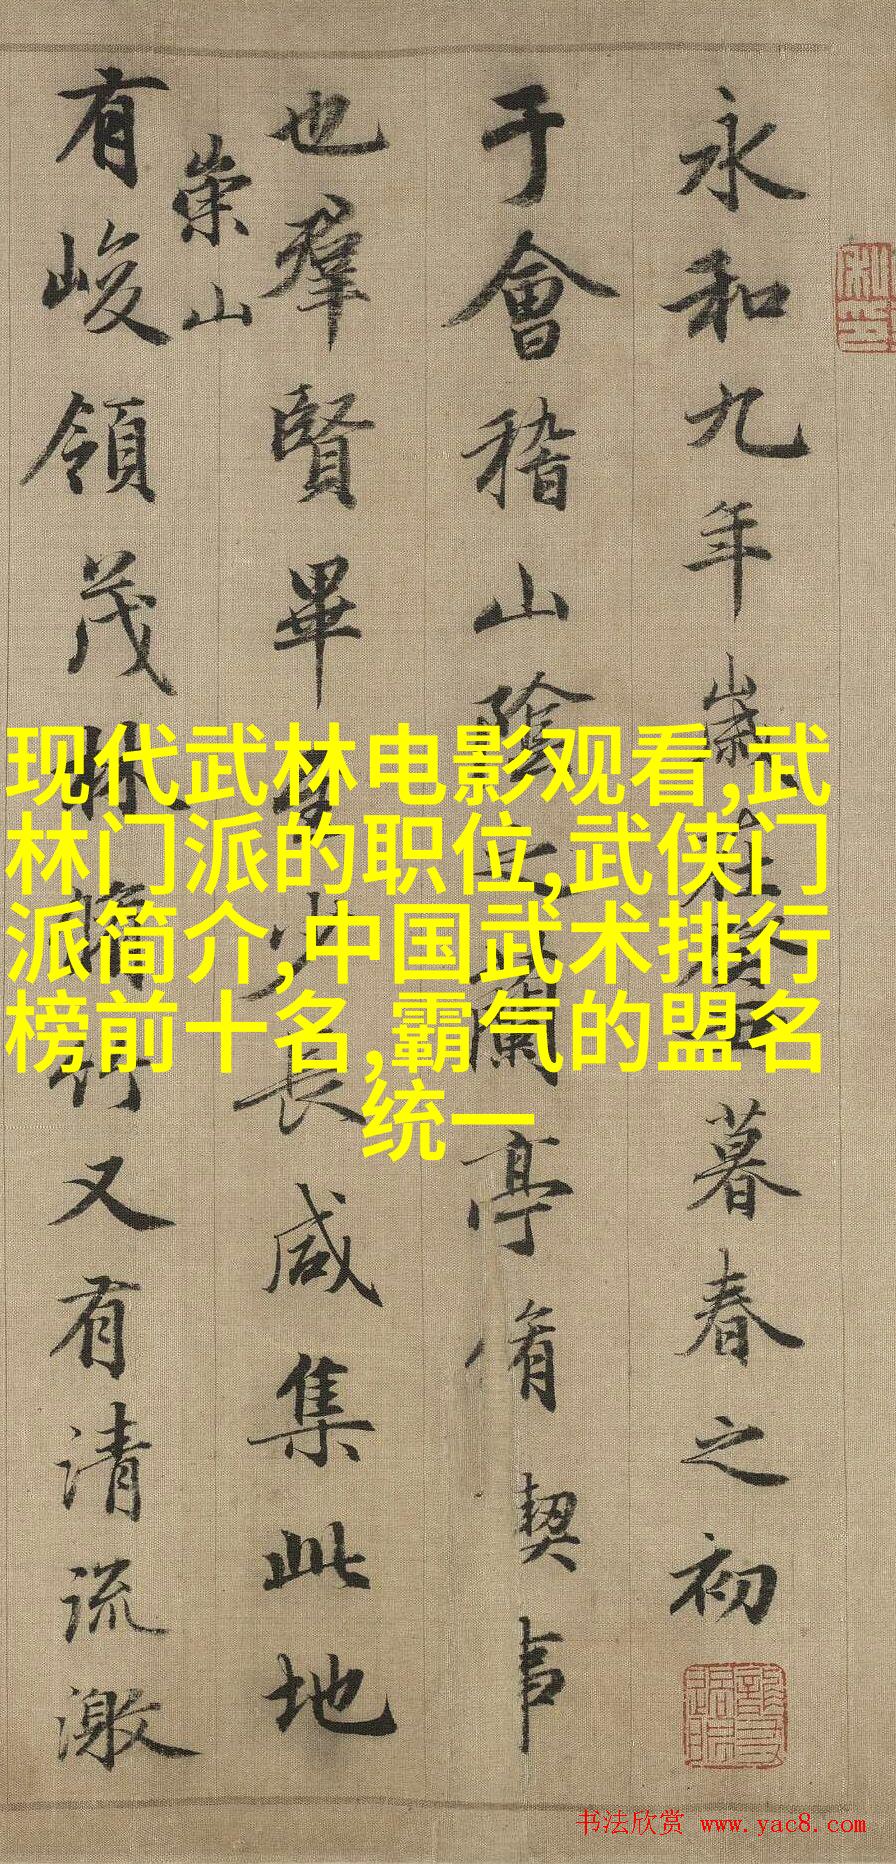 永和九年歲在癸丑暮春之初
于會稽山陰之蘭亭脩稧事
也羣賢畢至少長咸集此地
崇山
有峻領茂林脩竹又有清流激
现代武林电影观看,武
林门派的职位,武侠门
派简介,中国武术排行
榜前十名,霸气的盟名
统一
书法欣赏 www.yac8.com